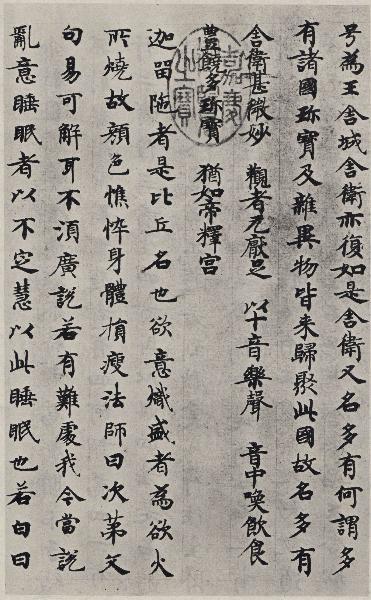 号為王舍城舍衛亦復如是舍衛又名多有何謂多
有諸國珎寶及雜異物皆来歸聚此國故名多有
舍衛甚微妙 觀者无厭足 以十音樂聲 音中喚飲食
豊饒多珎寶 猶如帝釋宫
迦留陁者是比丘名也欲意熾盛者為欲火
所燒故顔色憔悴身體損瘦法師曰次第文
句易可解耳不湏廣說若有難處我今當説
亂意睡眠者以不定慧以此睡眠也若白日